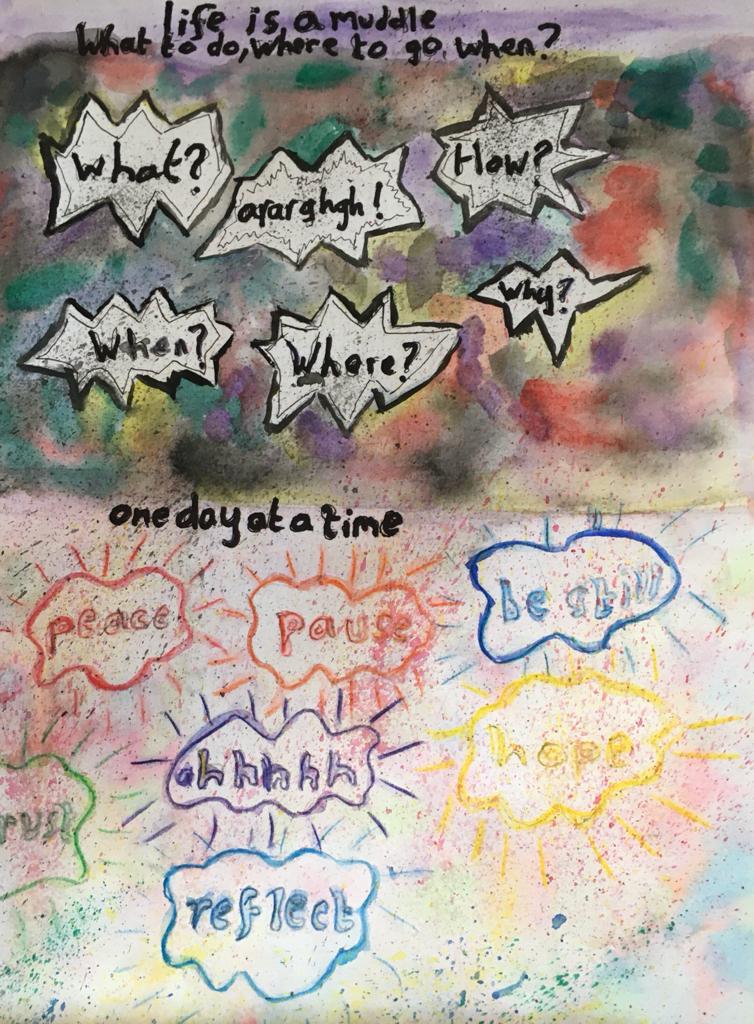 life is a muddle
What to do, where to go, when?
What?
ararghgh!
How?
When?
Where?
Why?
one day at a time
peace
pause
be still
ahhhhh
hope
rust
reflect